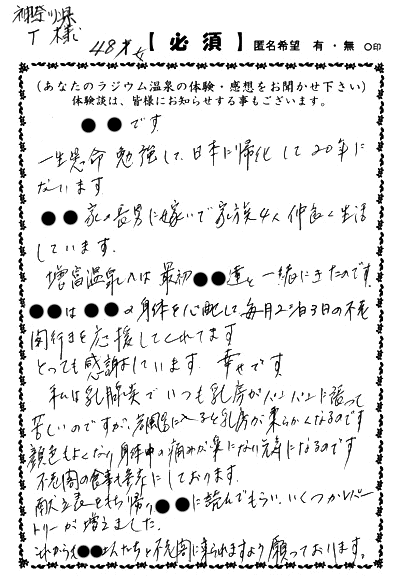 神奈川県
T 様
48才 女
【必須】 匿名希望 有・無 〇印
(あなたのラジウム温泉の体験・感想をお聞かせ下さい)
体験談は、皆様にお知らせする事もございます。
●●です
一生懸命 勉強して 日本に帰化して20年に
なります
●●家の長男に嫁いで家族4人仲良く生活
しています.
増富温泉へは最初●●達と一緒にきたのです.
●●は●●の身体を心配して毎月2泊3日の不老
閣行きを応援してくれてます
とっても感謝しています. 幸せです
私は乳腺炎でいつも乳房がパンパンに張って
苦しいのですが、岩風呂に入ると乳房が柔らかくなるのです
顔色もよくなり身体中の痛みが楽になり元気になるのです
不老閣の食事も参考にしております.
献立表をもち帰り●●に読んでもらい、いくつかレパー
トリーが増えました.
これからも●●人たちと不老閣に来られますよう願っております。